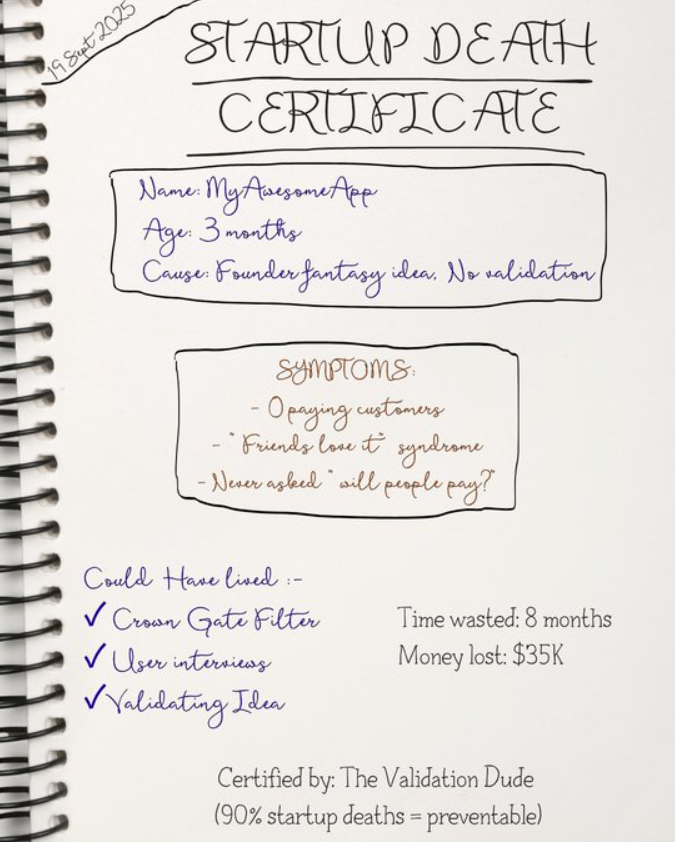 19 Sept 2025
STARTUP DEATH
CERTIFICATE
Name: MyAwesomeApp
Age: 3 months
Cause: Founder fantasy idea. No validation
SYMPTOMS:
- 0 paying customers
- "Friends love it" syndrome
- Never asked "will people pay?"
Could Have lived :-
✓ Crown Gate Filter
✓ User interviews
✓ Validating Idea
Time wasted: 8 months
Money lost: $35K
Certified by: The Validation Dude
(90% startup deaths = preventable)